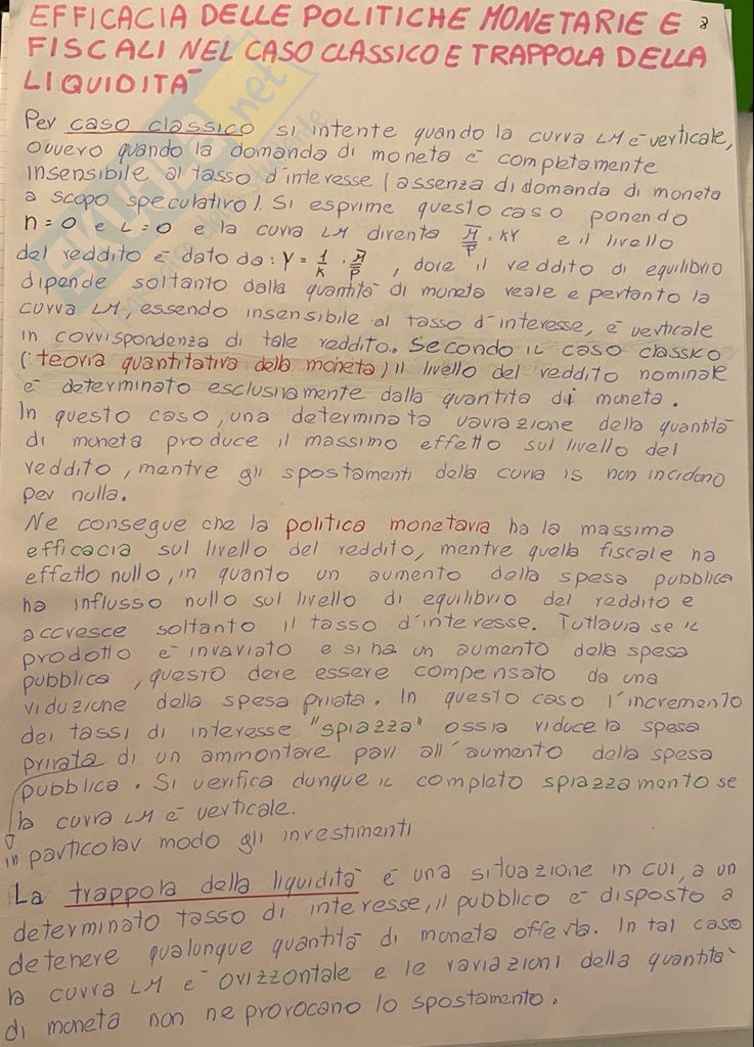 EFFICACIA DELLE POLITICHE MONETARIE E
FISCALI NEL CASO CLASSICO E TRAPPOLA DELLA
LIQUIDITA'
Per caso classico si intente quando la curva LM è verticale,
ovvero quando la domanda di moneta è completamente
insensibile al tasso d'interesse (assenza di domanda di moneta
a scopo speculativo). Si esprime questo caso ponendo
n=0 e L=0 e la curva LM diventa M̄/P̄ = KY e il livello
del reddito è dato da: Y = 1/K · M̄/P̄, dove il reddito di equilibrio
dipende soltanto dalla quantità di moneta reale e pertanto la
curva LM, essendo insensibile al tasso d'interesse, è verticale
in corrispondenza di tale reddito. Secondo il caso classico
(teoria quantitativa della moneta) il livello del reddito nominale
è determinato esclusivamente dalla quantità di moneta.
In questo caso, una determinata variazione della quantità
di moneta produce il massimo effetto sul livello del
reddito, mentre gli spostamenti della curva is non incidono
per nulla.
Ne consegue che la politica monetaria ha la massima
efficacia sul livello del reddito, mentre quella fiscale ha
effetto nullo, in quanto un aumento della spesa pubblica
ha influsso nullo sul livello di equilibrio del reddito e
accresce soltanto il tasso d'interesse. Tuttavia se il
prodotto è invariato e si ha un aumento della spesa
pubblica, questo deve essere compensato da una
riduzione della spesa privata. In questo caso l'incremento
dei tassi di interesse "spiazza" ossia riduce la spesa
privata di un ammontare pari all'aumento della spesa
pubblica. Si verifica dunque il completo spiazzamento se
la curva LM è verticale.
in particolar modo gli investimenti
La trappola della liquidità è una situazione in cui, a un
determinato tasso di interesse, il pubblico è disposto a
detenere qualunque quantità di moneta offerta. In tal caso
la curva LM è orizzontale e le variazioni della quantità
di moneta non ne provocano lo spostamento.